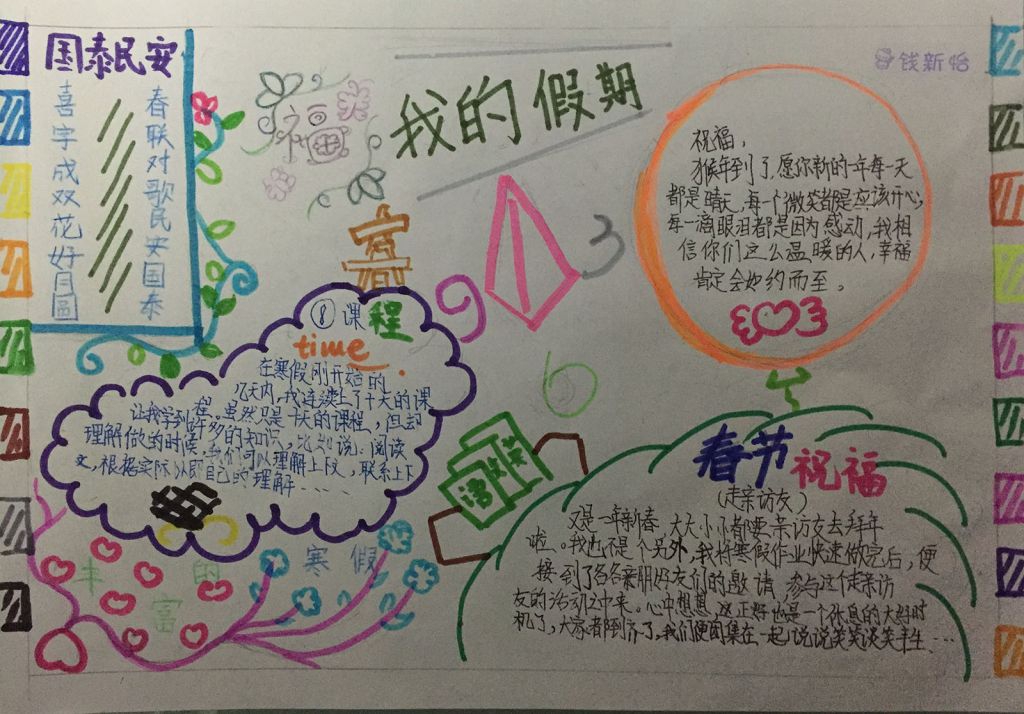 国泰民安
春联对歌民安国泰
喜字成双花好月圆
福
我的假期
钱新怡
祝福，
猴年到了，愿你新的一年每一天
都是晴天，每一个微笑都是应该开心，
每一滴眼泪都是因为感动，我相
信你们这么温暖的人，幸福
肯定会如约而至。
①课程
time
在寒假刚开始的
几天内，我连续上了十天的课
程。虽然只是十天的课程，但却
让我学到许多的知识，比如说：阅读
理解做的时候，我们可以理解上段，联系上下
文，根据实际从即自己的理解……
语
春节祝福
（走亲访友）
又是一年新春，大大小小都要亲访友去拜年
啦。我也不是个另外，我将寒假作业快速做完后，便
接到了各各亲朋好友们的邀请，参与这个走亲访
友的活动之中来。心中想想，这正好也是一个休息的大好时
机了，大家都到齐了，我们便围集在一起，说说笑笑谈笑半生…
丰富的寒假
3
9
6